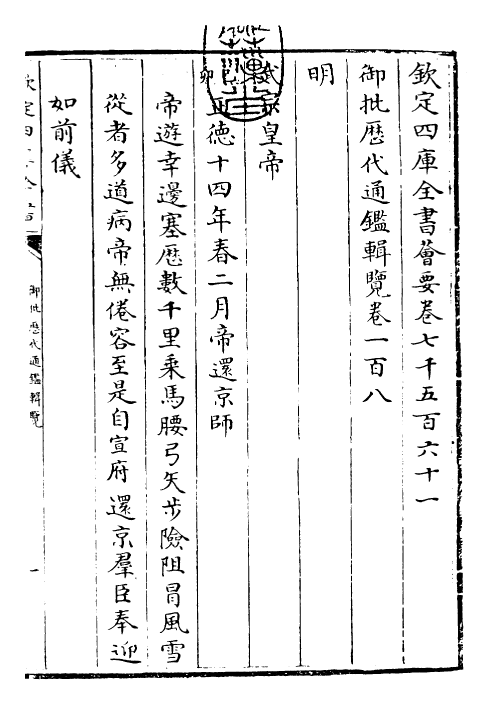 欽定四庫全書薈要卷七千五百六十一
御批歷代通鑑輯覽卷一百八
明
武宗皇帝
卯
正德十四年春二月帝還京師
帝遊幸邊塞歷數千里乘馬腰弓矢步險阻冒風雪
從者多道病帝無倦容至是自宣府還京羣臣奉迎
如前儀
欽定四庫全書
御批歷代通鑑輯覽
一